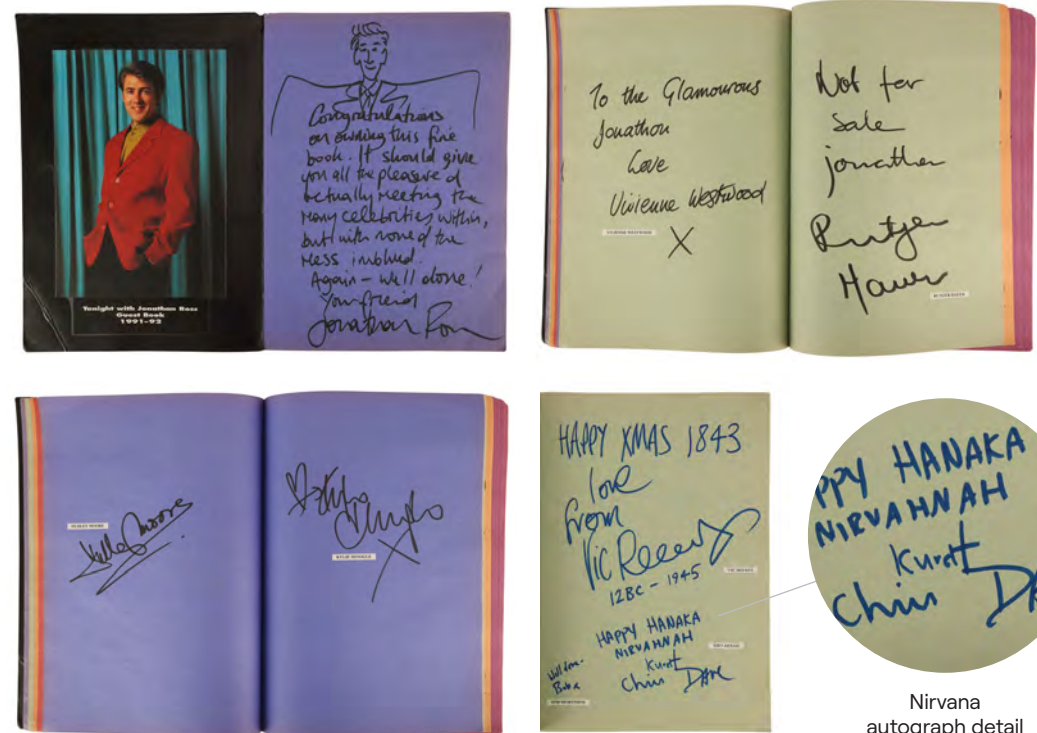 Tonight with Jonathan Ross
Guest Book
1991-92
Congratulations
on owning this fine
book. It should give
you all the pleasure of
actually meeting the
many celebrities within,
but with none of the
mess involved.
Again – well done!
Your friend
Jonathan Ross
To the Glamourous
Jonathon
Love
Vivienne Westwood
VIVIENNE WESTWOOD
X
Not for
Sale
jonathan
Rutger
Hauer
RUTGER HAUER
DUDLEY MOORE
Dudley Moore
Kylie
Minogue
KYLIE MINOGUE
X
HAPPY XMAS 1843
love
from
Vic Reeves
VIC REEVES
12BC - 1945
HAPPY HANAKA
NIRVAHNAH
Kurdt
Chris DAVE
Well done
Bob x
PPY HANAKA
NIRVAHNAH
Kurdt
Chris DA
Nirvana
autograph detail